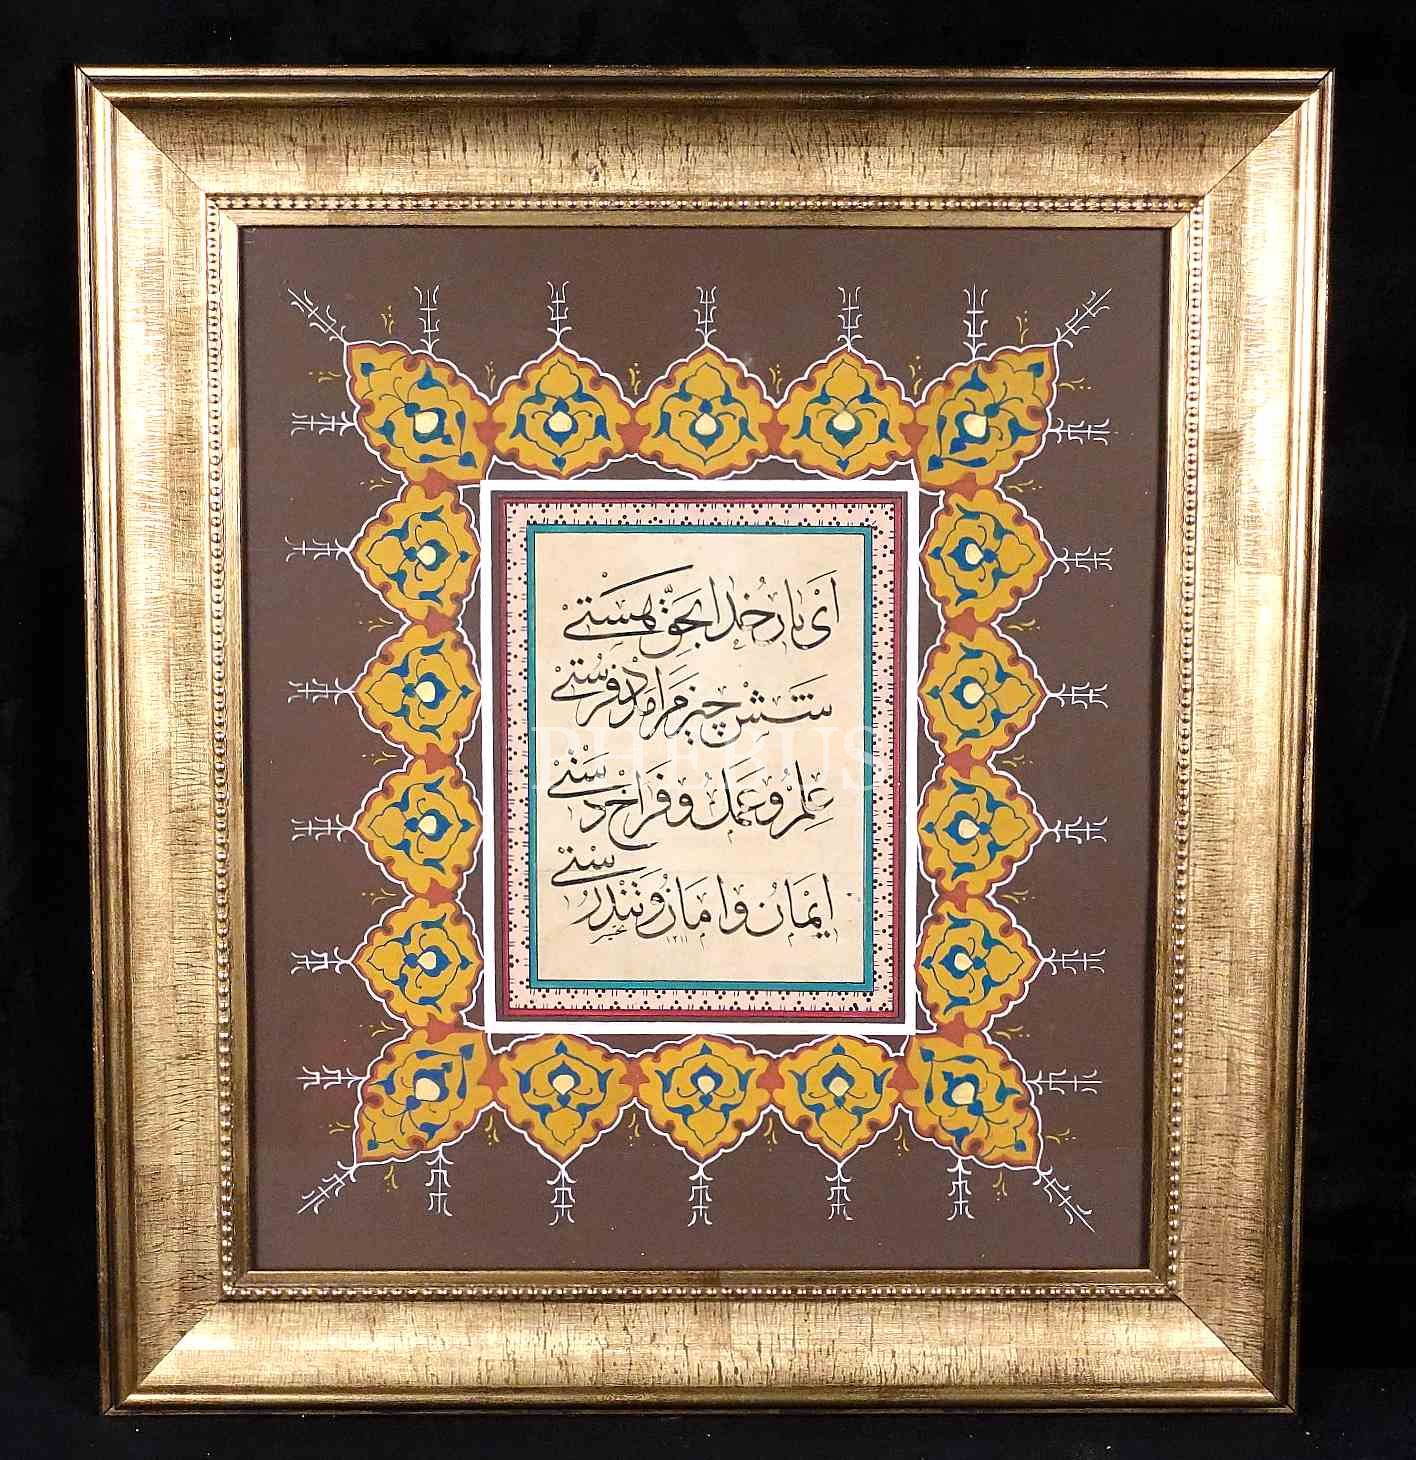 اَی بار خُدا بحقّ هستی
شَش چیز مرا مدد فرستی
علم و عمل و فراخ دستی
ایمان و امان و تندرستی
١٢١١
PHEBUS